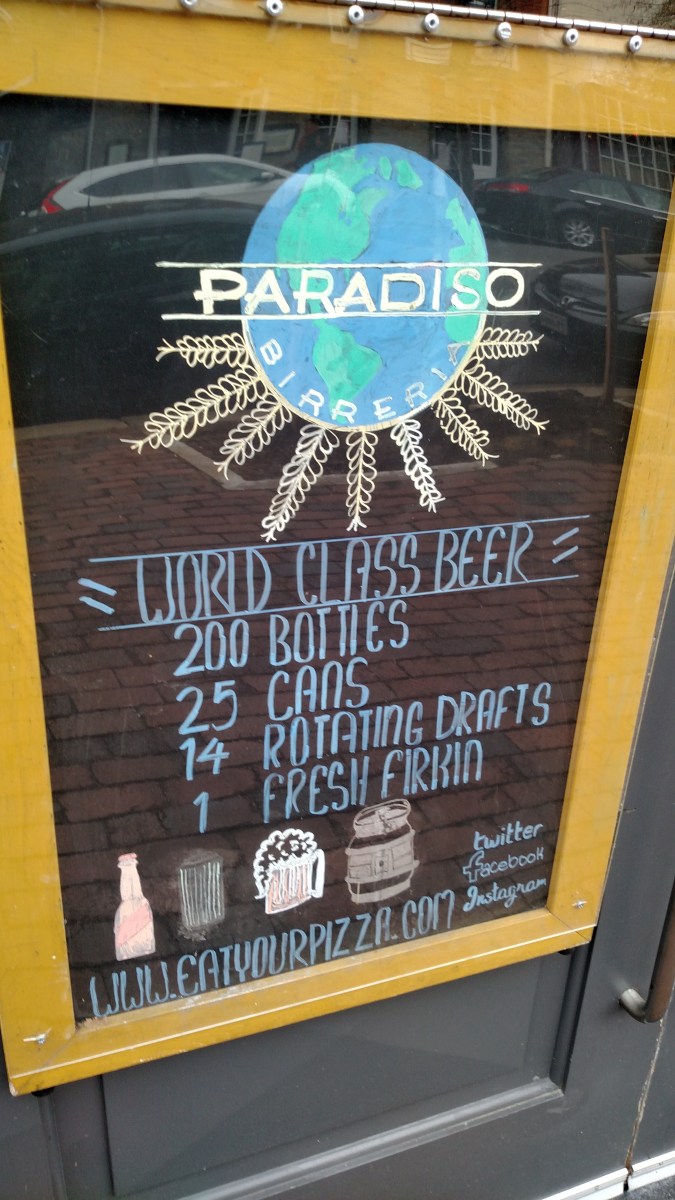 PARADISO
BIRRERIA
WORLD CLASS BEER
200 BOTTLES
25 CANS
14 ROTATING DRAFTS
1 FRESH FIRKIN
twitter
facebook
Instagram
WWW.EATYOURPIZZA.COM